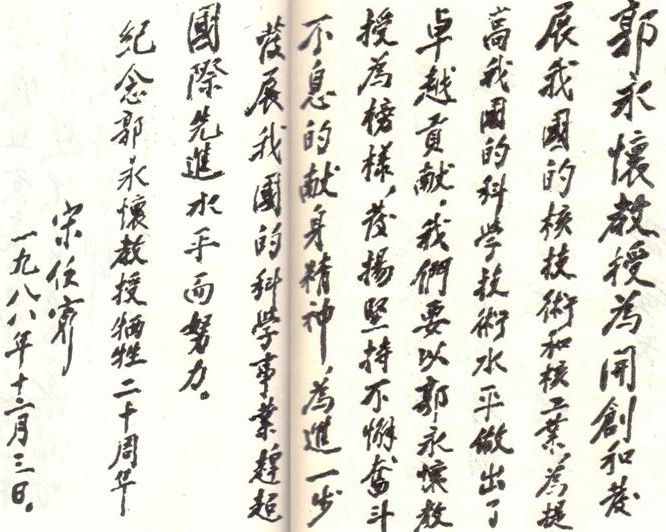 郭永懷教授為開創和發
展我國的核技術和核工業，為提
高我國的科學技術水平做出了
卓越貢献。我們要以郭永懷教
授為榜樣，發揚堅持不懈奮斗
不息的献身精神，為進一步
發展我國的科學事業趕超
國際先進水平而努力。
紀念郭永懷教授牺牲二十周年
宋任窮
一九八八年十二月三日。